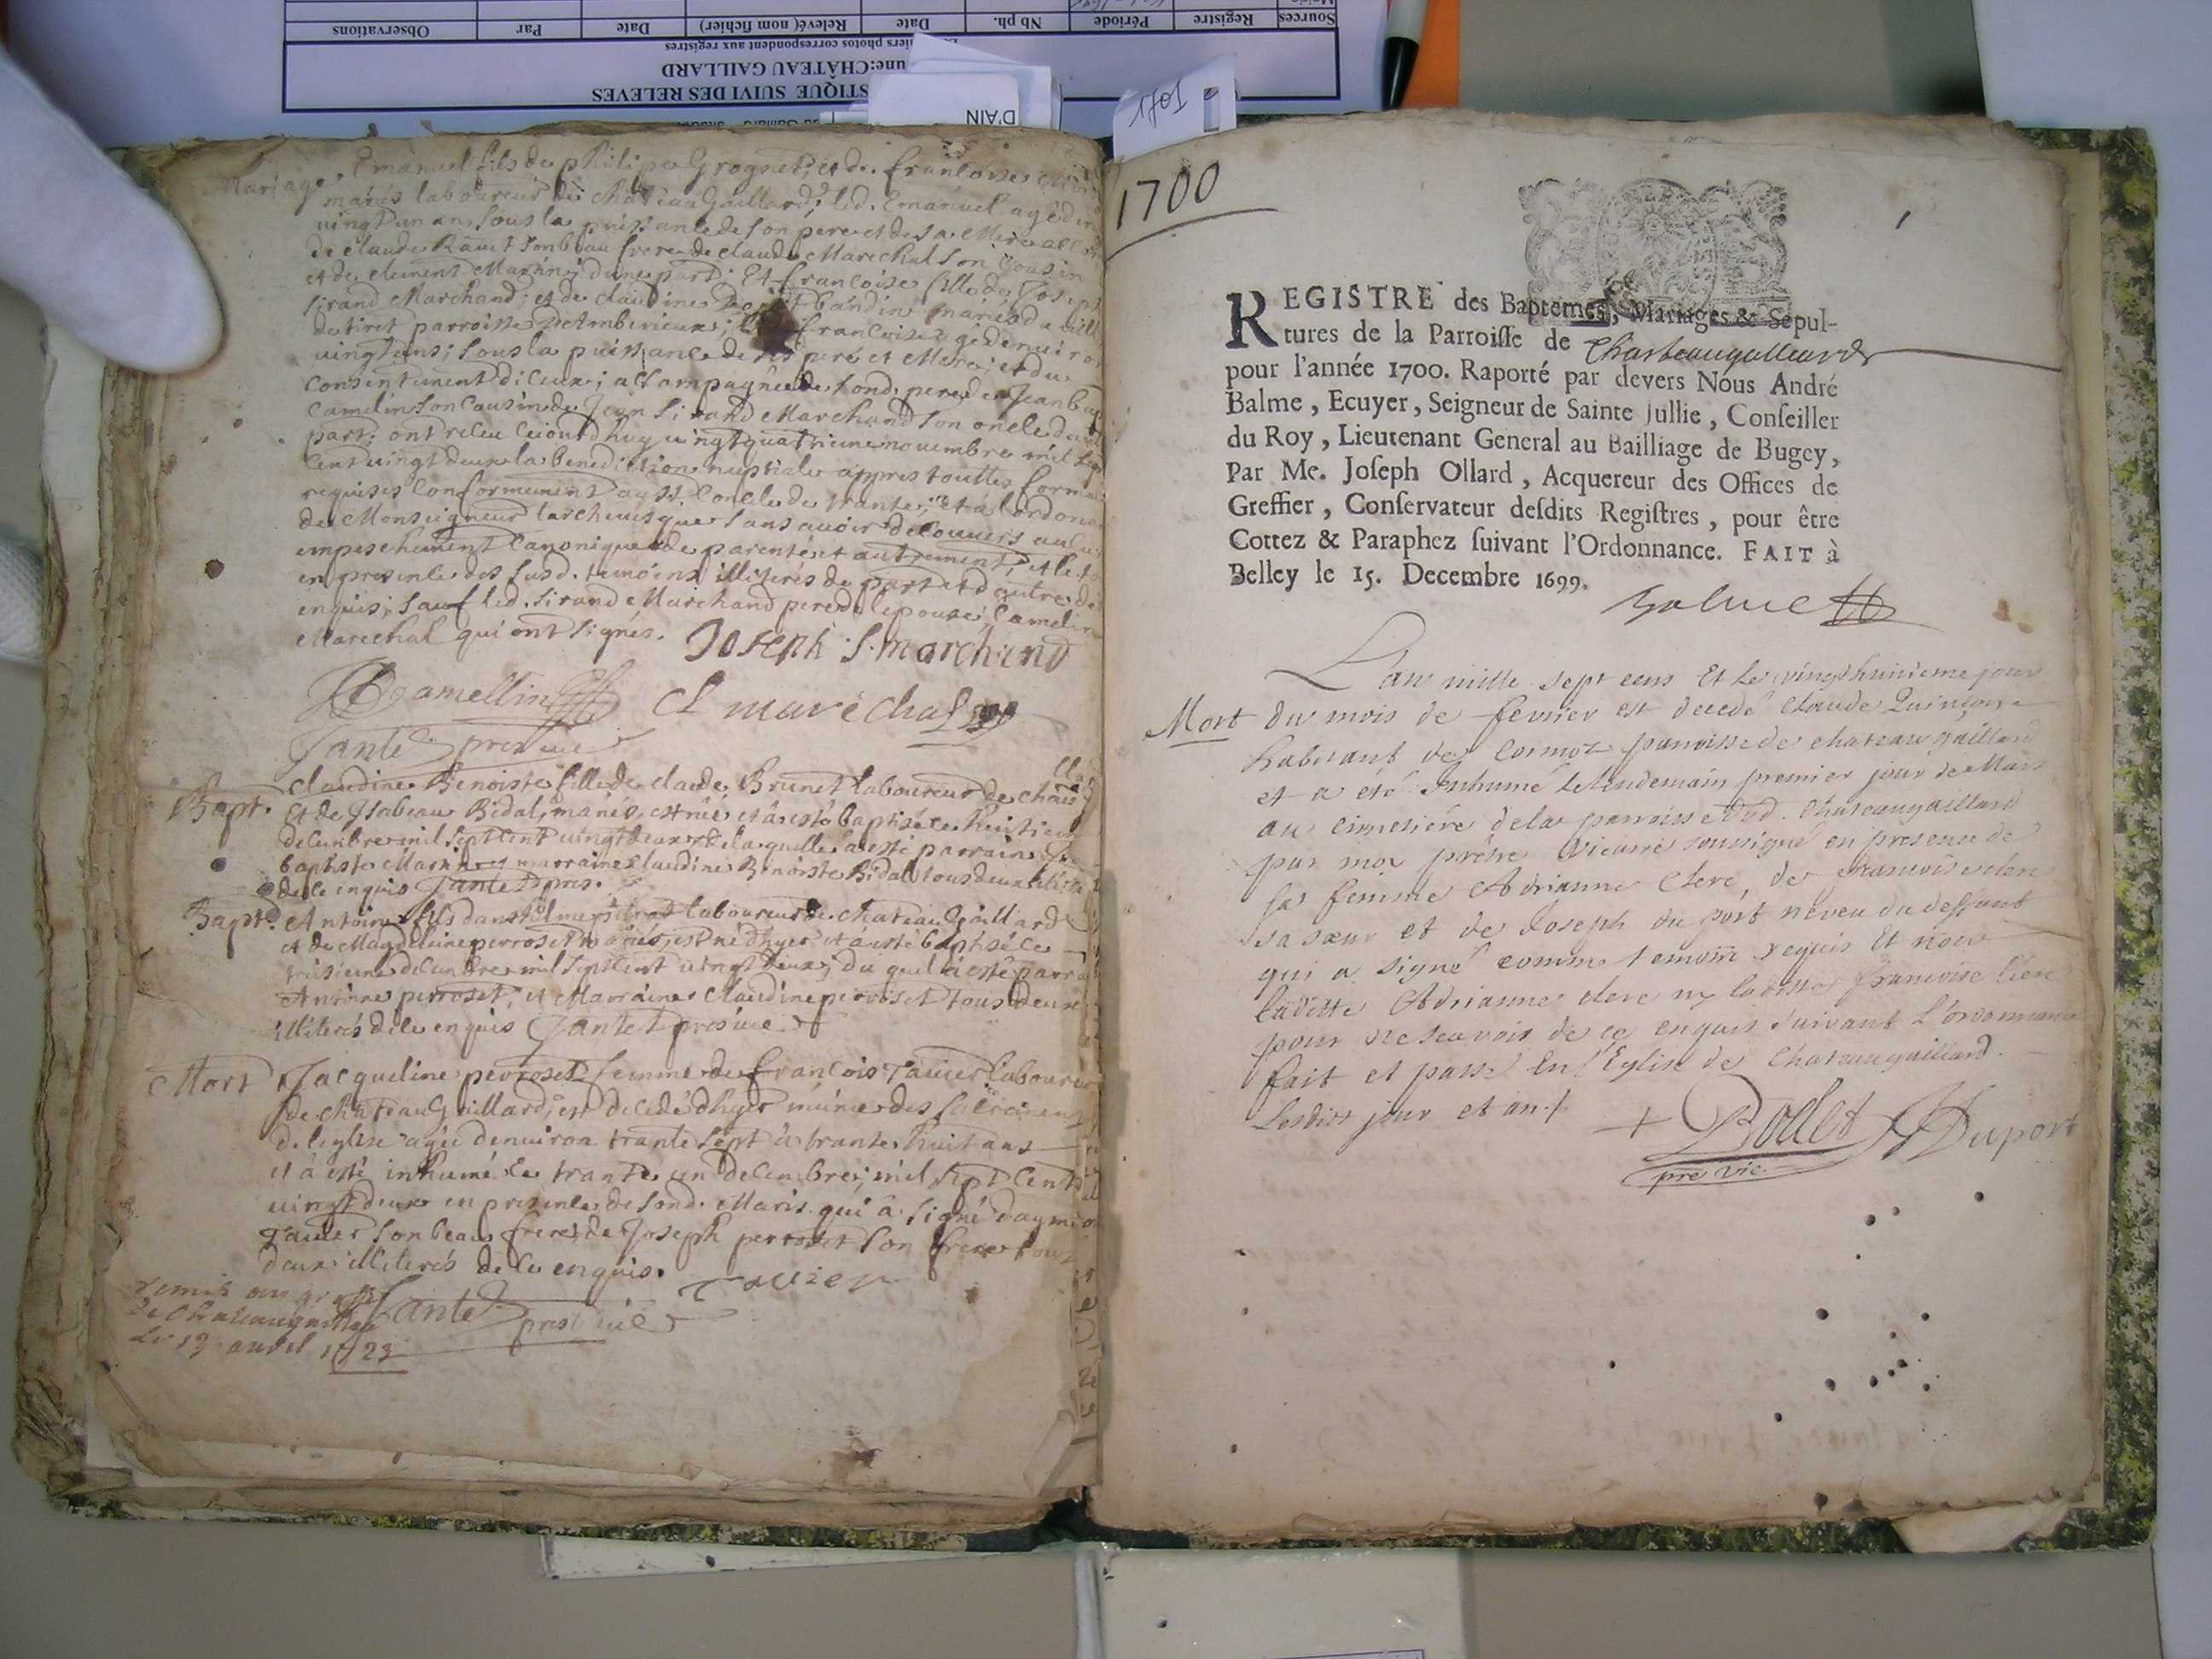 Sources Registre Période Nb ph. Date Relevé (nom fichier) Date Par Observations
photos correspondent aux registres
une: CHÂTEAU GAILLARD
STIQUE SUIVI DES RELEVES
D'AIN
Mariage. Emanuel fils de philipe Grognet; et de francoise
mariés laboureur de ChateauGaillard; led. Emanuel agé de
uingt un an sous la puissance de son pere et de sa Mere
de claude Rauet son beau frere de claude Marechal son Cousin
et de clement Marin; dune part. Et francoise fille de Joseph
sirand Marchand; et de claudine bandin mariés
de tiret parroisse DeAmberieux; francoise agé denuiron
uingt ans; sous la puissance de ses pere et Mere; et du
Consentement diceux; accompagnée de sond. pere de Jean
Camelin son Cousin de Jean sirand Marchand son oncle
part; ont receu ceiourdhuy uingtquatrieme nouembre mil sept
Cent uingt deux la benediction nuptiale appres touttes
requises Conformement au st. Concile de trante; et a
de Monseigneur larcheuesque sans auoir decouuert aulcun
empeschement Canonique de parenté et autrement,
en presence des susd. temoins illiterés de part et dautre de
enquis; sauf led. sirand Marchand pere de lepouse; Camelin
Marechal qui ont signés. Joseph S. marchand
Camellin Cl marèchal
Jantet pres uic
Bapt. claudine Benoiste fille de claude Brunet laboureur de
et de ysabeau Bidal, mariés, est née et â esté baptisée le huitieme
decembre mil sept cent uingt deux de laquelle a esté parrain
baptiste Marin et marraine claudine Benoiste Bidal tous deux
de ce enquis Jantet pres.
Bapt. Antoine fils danthelme laboureur de chateauGaillard
et de Magdeleine perroset mariés, est né dhyer et â esté baptisé le
decembre mil sept cent uingt deux; du quel â esté parrain
Antoine perroset, et Marraine Claudine perroset tous deux
illiterés de ce enquis Jantet pres uic
Mort Jacqueline perroset femme de francois Tauier laboureur
de chateauGaillard, est decedé dhyer munie des sacremens
de leglise agée denuiron trante sept â trante huit ans
et â esté inhumé le trante un decembre, mil sept Cent
uingt deux en presence de sond. Maris qui â signé
Tauier son beau frere, de Joseph perroset son frere tous
deux illiterés de ce enquis. Tavier
remis au greffe Jantet pres uic
de Chateaugaillard
Le 13 auril 1723
1700
1
REGISTRE des Baptemes, Mariages & Sepul-
tures de la Parroisse de Chasteaugalliard
pour l'année 1700. Raporté par devers Nous André
Balme, Ecuyer, Seigneur de Sainte Jullie, Conseiller
du Roy, Lieutenant General au Bailliage de Bugey,
Par Me. Joseph Ollard, Acquereur des Offices de
Greffier, Conservateur desdits Registres, pour être
Cottez & Paraphez suivant l'Ordonnance. FAIT à
Belley le 15. Decembre 1699.
Balme
L'an mille sept cens Et le vingt huitieme jour
Mort du mois de fevrier est decedé Claude
habitant de Cormoz parroisse de chateau gaillard
et a été Inhumé le lendemain premier jour de Mars
au cimetiére dela parroisse dud. Chateaugaillard
par moy prêtre vicaire soussigné en presence de
sa femme Adrianne Clerc, de
sa sœur et de Joseph du port neveu du deffunt
qui a signé comme temoin requis Et non
laditte Adrianne clerc ny laditte francoise
pour ne scavoir de ce enquis suivant l'ordonnance
fait et passé En l'Eglise de Chateaugaillard.
Lesdits jour et an.
Rollet Duport
pre vic.